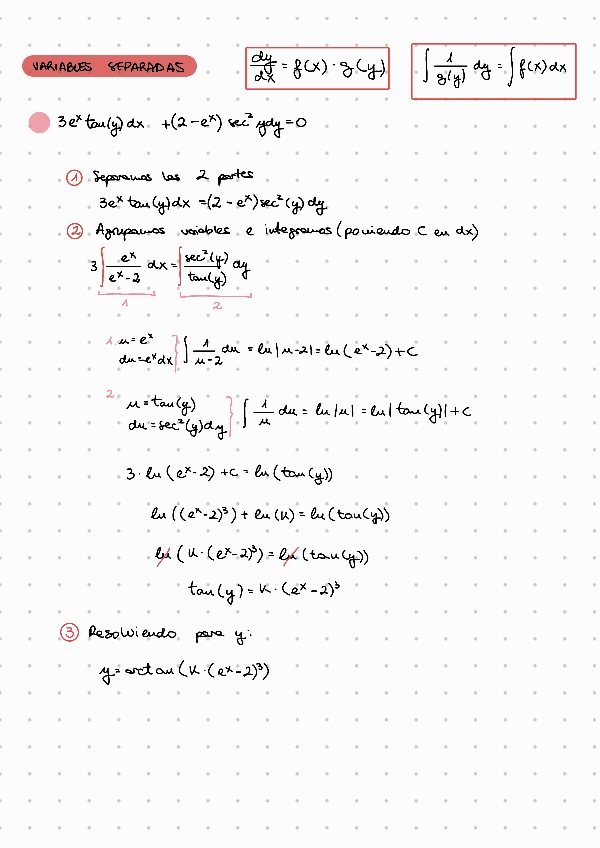 VARIABLES SEPARADAS
dy/dx = f(x) · g(y)
∫ 1/g(y) dy = ∫ f(x) dx
3eˣ tan(y) dx + (2 - eˣ) sec² y dy = 0
① Separamos las 2 partes
3eˣ tan(y) dx = (2 - eˣ) sec² (y) dy
② Agrupamos variables e integramos (poniendo C en dx)
3 ∫ eˣ/(eˣ - 2) dx = ∫ sec²(y)/tan(y) dy
1 2
1. u = eˣ
du = eˣ dx } ∫ 1/(u - 2) du = ln |u - 2| = ln (eˣ - 2) + C
2. u = tan(y)
du = sec²(y) dy } ∫ 1/u du = ln |u| = ln | tan(y)| + C
3 · ln (eˣ - 2) + C = ln (tan(y))
ln ((eˣ - 2)³) + ln (K) = ln (tan(y))
ln (K · (eˣ - 2)³) = ln (tan(y))
tan(y) = K · (eˣ - 2)³
③ Resolviendo para y:
y = arctan (K · (eˣ - 2)³)